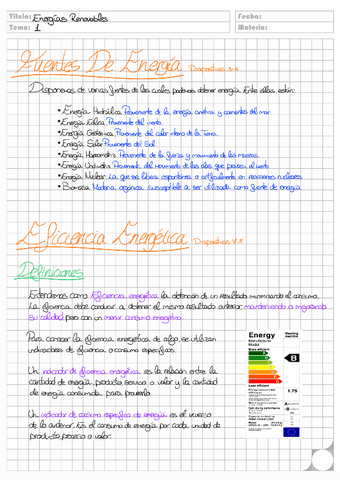 Título: Energías Renovables
Fecha:
Tema: 1
Materia:
Fuentes De Energía Diapositivas 3-4
Disponemos de varias fuentes de las cuales podemos obtener energía. Entre ellas están:
• Energía Hidráulica Proveniente de la energía cinética y corrientes del mar.
• Energía Eólica Proveniente del viento.
• Energía Geotérmica Proveniente del calor interno de la Tierra.
• Energía Solar Proveniente del Sol.
• Energía Mareomotriz Proveniente de la fuerza y movimiento de las mareas.
• Energía Undimotriz Proveniente del movimiento de las olas que provoca el viento.
• Energía Nuclear La que se libera espontánea o artificialmente en reacciones nucleares.
• Biomasa Materia orgánica susceptible a ser utilizada como fuente de energía
Eficiencia Energética Diapositivas
Definiciones
Entendemos como Eficiencia energética la obtención de un resultado minimizando el consumo.
La eficiencia debe conducir a obtener el mismo resultado anterior, manteniendo o mejorando
su calidad pero con un menor consumo energético
Para conocer la eficiencia energética de algo se utilizan
indicadores de eficiencia o consumo específicos.
Un indicador de eficiencia energética es la relación entre la
cantidad de energía, producto, servicio o valor y la cantidad
de energía consumida para proveerla
Un indicador de consumo específico de energía es el inverso
de lo anterior. Es el consumo de energía por cada unidad de
producto, proceso o valor.
Energy
Manufacturer
Model
More efficient
B
Less efficient
1.75